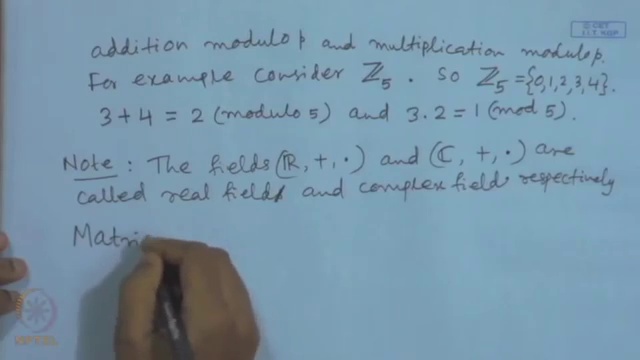 © CET
I.I.T. KGP
addition modulo p and multiplication modulo p.
For example consider ℤ₅ . So ℤ₅ = {0,1,2,3,4}.
3 + 4 = 2 (modulo 5) and 3 . 2 = 1 (mod 5).
Note : The fields (ℝ, +, ·) and (ℂ, +, ·) are
called real field and complex field respectively
Matri
NPTEL